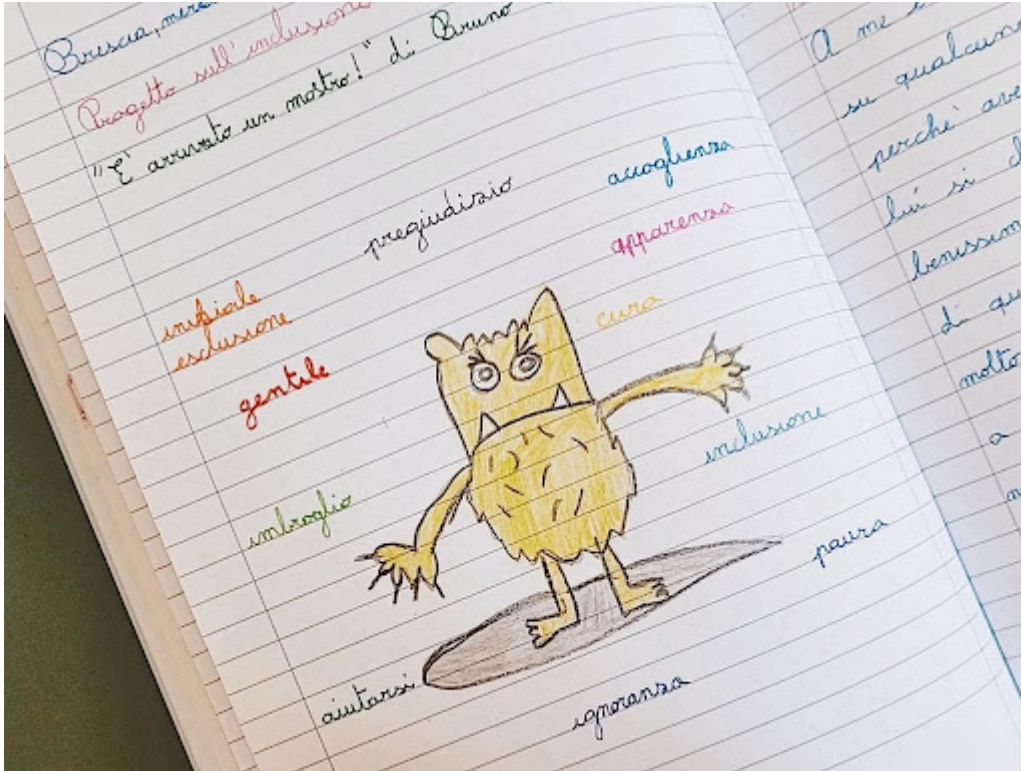 Brescia, merc
Progetto sull'inclusione
"È arrivato un mostro!" di Bruno
pregiudizio
accoglienza
apparenza
iniziale
esclusione
cura
gentile
inclusione
imbroglio
paura
aiutarsi
ignoranza
A me è
su qualcuno
perché ave
lui si c
benissim
di qu
molto
a